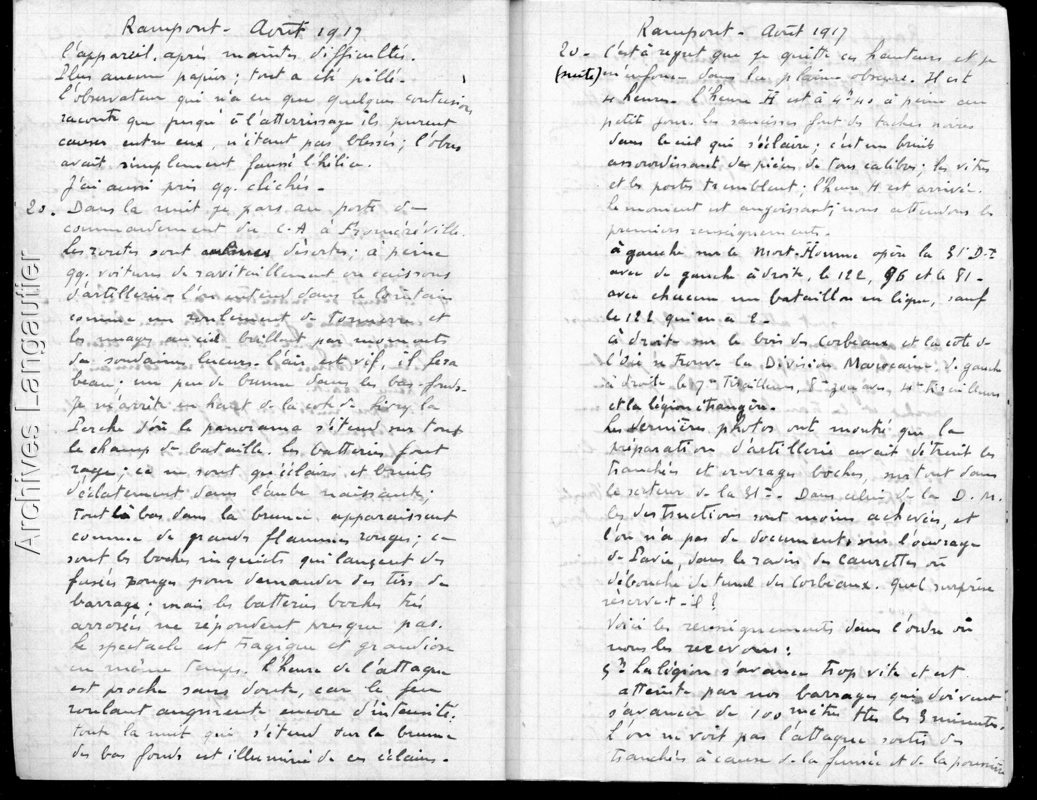 Rampont - Août 1917
l'appareil, après maintes difficultés.
Plus aucun papier; tout a été pillé.
l'observateur qui n'a eu que quelques contusions
raconte que jusqu'à l'atterrissage ils purent
causer entre eux, n'étant pas blessés; l'obus
avait simplement faussé l'hélice.
J'ai aussi pris qq. clichés -
20. Dans la nuit je pars au poste de
commandement du C.A à Fromeréville.
Les routes sont désertes; à peine
qq. voitures de ravitaillement ou caissons
d'artillerie - l'on entend dans le lointain
comme un roulement de tonnerre et
les nuages au ciel brillent par moments
de soudaines lueurs. l'air est vif, il fera
beau; un peu de brume dans les bas-fonds.
Je m'arrête en haut de la cote de Sivry la
Perche d'où le panorama s'étend sur tout
le champ de bataille. les batteries font
rage; ce ne sont qu'éclairs et bruits
d'éclatement dans l'aube naissante;
tout là bas dans la brume apparaissent
comme de grandes flammes rouges; ce
sont les boches inquiets qui lancent des
fusées rouges pour demander des tirs de
barrage; mais les batteries boches très
arrosées ne répondent presque pas.
Le spectacle est tragique et grandiose
en même temps. l'heure de l'attaque
est proche sans doute, car le feu
roulant augmente encore d'intensité;
toute la nuit qui s'étend sur la brume
des bas fonds est illuminée de ces éclairs -
Rampont - Août 1917
20 - C'est à regret que je quitte ces hauteurs et je
(suite) m'enfonce dans la plaine obscure. Il est
4 heures. l'heure H est à 4h 40, à peine au
petit jour. les saucisses font des taches noires
dans le ciel qui s'éclaire; c'est un bruit
assourdissant de pièces de tous calibres; les vitres
et les portes tremblent; l'heure H est arrivée.
Le moment est angoissant; nous attendons les
premiers renseignements.
à gauche sur le Mort-Homme opère la 31e D.I
avec de gauche à droite, le 122, 96 et le 81 -
avec chacun un bataillon en ligne, sauf
le 122 qui en a 2 -
à droite sur le bois des Corbeaux et la cote de
l'Oie se trouve la Division Marocaine: de gauche
à droite le 7e Tirailleurs, 8e zouaves, 4e tirailleurs
et la légion étrangère.
Les dernières photos ont montré que la
préparation d'artillerie avait détruit les
tranchées et ouvrages boches, surtout dans
le secteur de la 31e - Dans celui de la D. M.
les destructions sont moins achevées, et
l'on n'a pas de documents sur l'ouvrage
de Pavie, dans le ravin des Caurettes où
débouche le tunel des Corbeaux. quel surprise
réserve-t-il?
Voici les renseignements dans l'ordre où
nous les recevons:
5h La légion s'avance trop vite et est
atteinte par nos barrages qui doivent
s'avancer de 100 mètres ttes les 3 minutes.
L'on ne voit pas l'attaque sortir des
tranchées à cause de la fumée et de la poussière
Archives Langautier